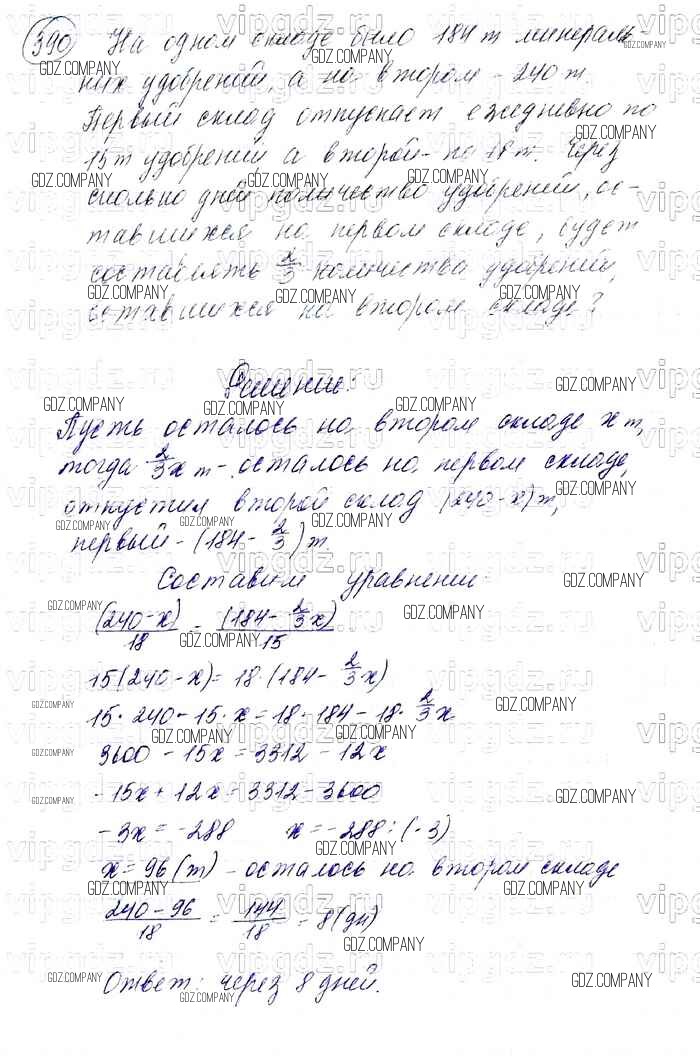 390 На одном складе было 184 т минераль-
ных удобрений, а на втором - 240 т.
Первый склад отпускает ежедневно по
15 т удобрений, а второй - по 18 т. Через
сколько дней количество удобрений, ос-
тавшихся на первом складе, будет
составлять 2/3 количества удобрений,
оставшихся на втором складе?
Решение:
Пусть осталось на втором складе x т,
тогда 2/3 x т - осталось на первом складе,
отпустил второй склад (240-x) т,
первый - (184 - 2/3) т.
Составим уравнение:
(240-x)/18 = (184 - 2/3 x)/15
15(240-x) = 18·(184 - 2/3 x)
15·240 - 15·x = 18·184 - 18·2/3 x
3600 - 15x = 3312 - 12x
-15x + 12x = 3312 - 3600
-3x = -288 x = -288 : (-3)
x = 96 (т) - осталось на втором складе
(240-96)/18 = 144/18 = 8 (дн)
Ответ: через 8 дней.
GDZ.COMPANY
vipgdz.ru